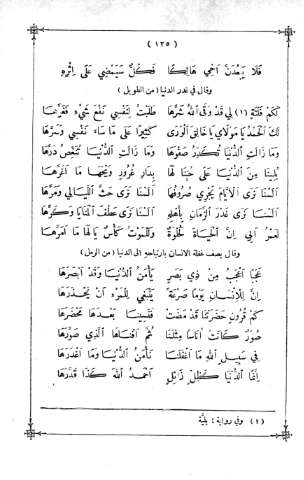 ( ١٣٥ )
فَلَا يَبْعَدَنَّ أَخِي هَالِكًا فَكُلٌّ سَيَمْضِي عَلَى إِثْرِهِ
وقال في غدر الدنيا (من الطويل)
لَكَ الْحَمْدُ يَا مَوْلَايَ يَا خَالِقَ الْوَرَى كَثِيرًا عَلَى مَا سَاءَ نَفْسِي وَسَرَّهَا
وَمَا زَالَتِ الدُّنْيَا تُكَدِّرُ صَفْوَهَا وَمَا زَالَتِ الدُّنْيَا تُنَغِّصُ دَرَّهَا
بُلِينَا مِنَ الدُّنْيَا عَلَى حُبِّنَا لَهَا بِدَارِ غُرُورٍ وَيْحَهَا مَا أَغَرَّهَا
أَلَسْنَا نَرَى الْأَيَّامَ يَجْرِي صُرُوفُهَا أَلَسْنَا نَرَى حَثَّ اللَّيَالِي وَمَرَّهَا
أَلَسْنَا نَرَى غَدْرَ الزَّمَانِ بِأَهْلِهِ أَلَسْنَا نَرَى عَطْفَ الْمَنَايَا وَكَرَّهَا
لَعَمْرُ أَبِي إِنَّ الْحَيَاةَ لَحُلْوَةٌ وَلَلْمَوْتُ كَأْسٌ يَا لَهَا مَا أَمَرَّهَا
وقال يصف غفلة الانسان بارتياحه الى الدنيا (من الرمل)
عَجَبًا أَعْجَبُ مِنْ ذِي بَصَرٍ يَأْمَنُ الدُّنْيَا وَقَدْ أَبْصَرَهَا
إِنَّ لِلْإِنْسَانِ يَوْمًا صَرْعَةً يَنْبَغِي لِلْمَرْءِ أَنْ يَحْذَرَهَا
كَمْ قُرُونٍ حَضَرَتْنَا قَدْ مَضَتْ
صُوَرٌ كَانَتْ أُنَاسًا مِثْلَنَا ثُمَّ أَفْنَاهَا الَّذِي صَوَّرَهَا
فِي سَبِيلِ اللهِ مَا أَغْفَلَنَا نَأْمَنُ الدُّنْيَا وَمَا أَغْدَرَهَا
إِنَّمَا الدُّنْيَا كَظِلٍّ زَائِلٍ أَحْمَدُ اللهَ كَذَا قَدَّرَهَا
(١) وفي رواية : بليَّة